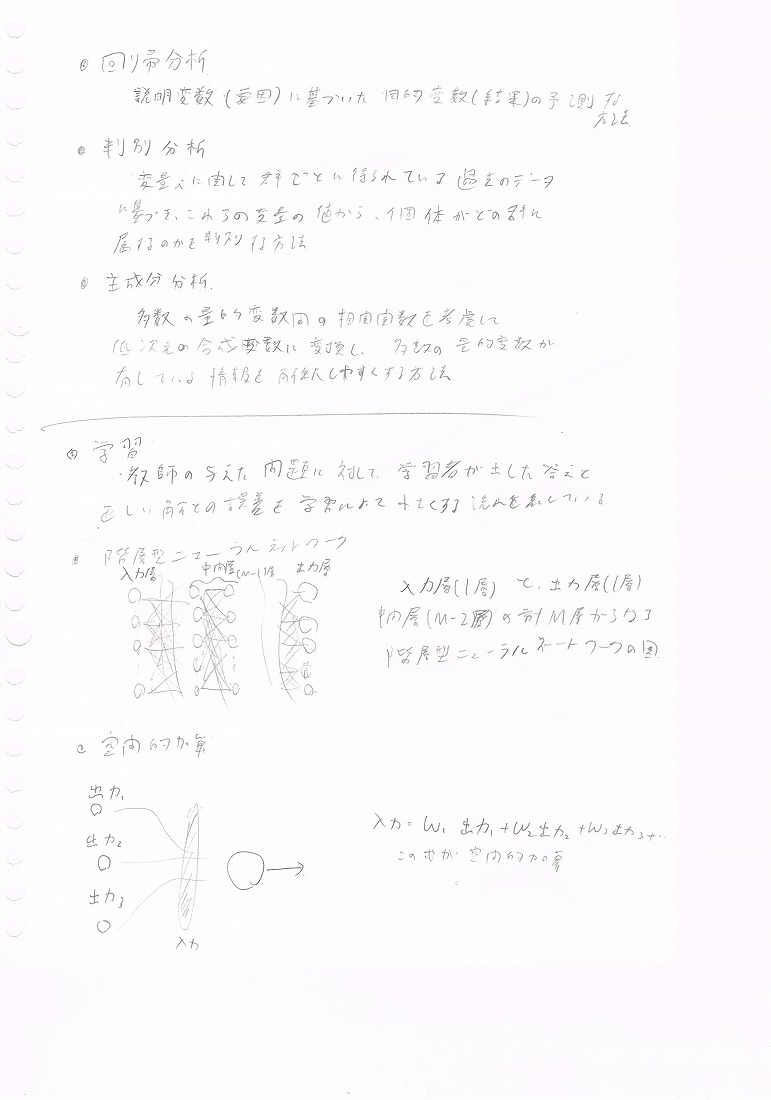 回り帰分析
説明変数(要因)に基づいた目的変数(結果)の予測な
方法
判別分析
変量iに関して群ごとに得られている過去のデータ
に基づき、これらの変量の値から、個体がどの群に
属するのかを判別する方法
主成分分析
多数の量的変数間の相関関数を考慮して
低次元の合成変数に変換し、多数の量的変数が
有している情報を解釈しやすくする方法
学習
・教師の与えた問題に対して、学習者が出した答えと
正しい解答との誤差を学習によって小さくする流れを表している。
階層型ニューラルネットワーク
入力層 中間層(M-2)層 出力層
入力層(1層)と、出力層(1層)
中間層(M-2層)の計M層からなる
階層型ニューラルネットワークの図
空間的加算
出力1
出力2
出力3
入力
入力= W1 出力1+W2出力2+W3出力3+…
この式が空間的加算